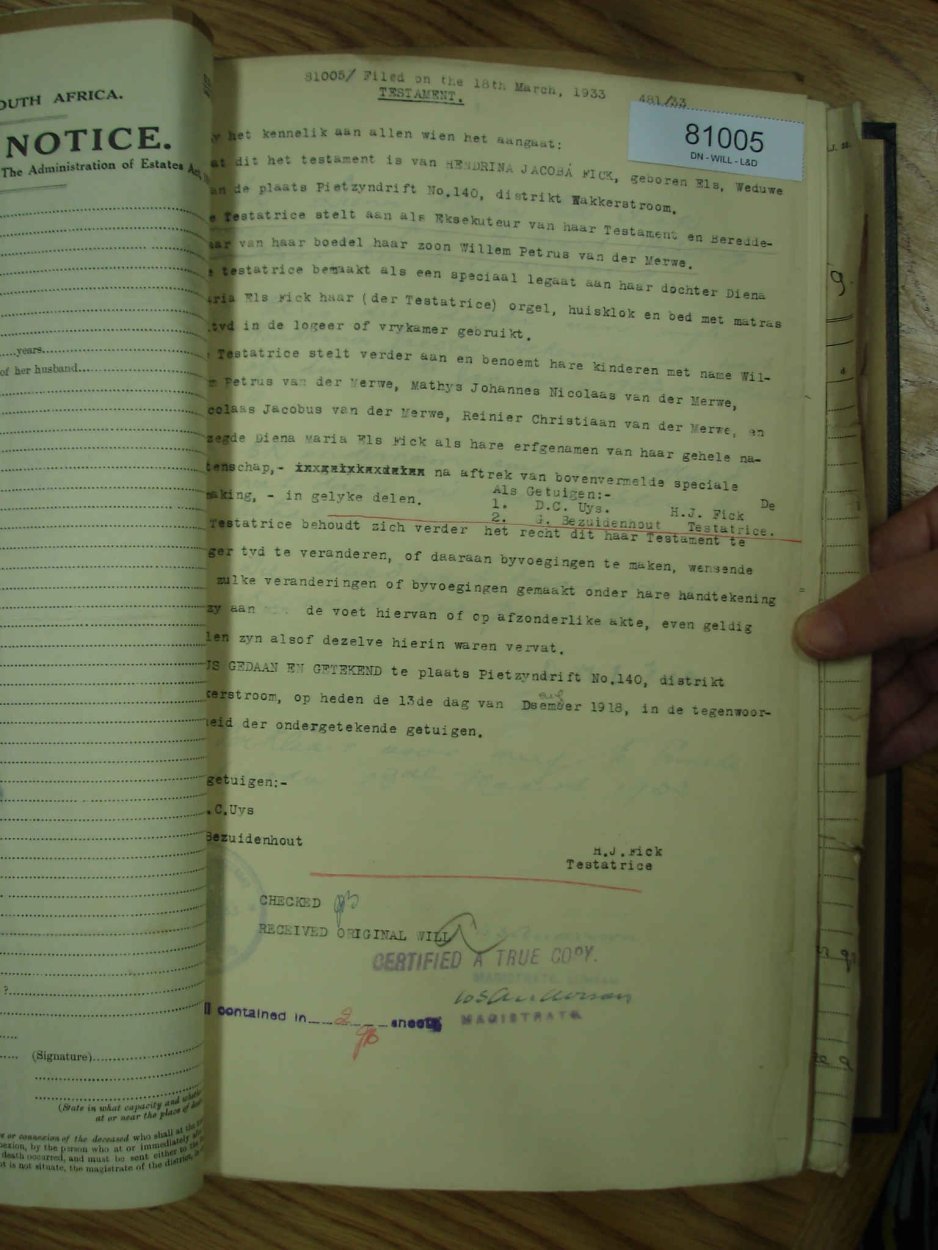 OUTH AFRICA.
NOTICE.
The Administration of Estates
....years
of her husband
?
(Signature)
(State in what capacity and
at or near the place of
or connexion of the deceased who shall at the
nexion, by the person who at or immediately
death occurred, and must be sent either to the
t is not situate, the magistrate of the district,
81005/ Filed on the 18th March, 1933 481/33
TESTAMENT.
81005
DN - WILL - L&D
y het kennelik aan allen wien het aangaat:
at dit het testament is van HENDRINA JACOBA FICK, geboren Els, Weduwe
an de plaats Pietzyndrift No.140, distrikt Wakkerstroom.
e Testatrice stelt aan als Eksekuteur van haar Testament en Beredde-
aar van haar boedel haar zoon Willem Petrus van der Merwe.
e testatrice bemaakt als een speciaal legaat aan haar dochter Diena
aria Els Fick haar (der Testatrice) orgel, huisklok en bed met matras
tyd in de logeer of vrykamer gebruikt.
Testatrice stelt verder aan en benoemt hare kinderen met name Wil-
m Petrus van der Merwe, Mathys Johannes Nicolaas van der Merwe,
colaas Jacobus van der Merwe, Reinier Christiaan van der Merwe, en
zegde Diena Maria Els Fick als hare erfgenamen van haar gehele na-
tenschap,- na aftrek van bovenvermelde speciale
making, - in gelyke delen. Als Getuigen:-
1. D.C. Uys. H.J. Fick De
2. G. Bezuidenhout Testatrice.
Testatrice behoudt zich verder het recht dit haar Testament te
ger tyd te veranderen, of daaraan byvoegingen te maken, wensende
zulke veranderingen of byvoegingen gemaakt onder hare handtekening
zy aan de voet hiervan of op afzonderlike akte, even geldig
len zyn alsof dezelve hierin waren vervat.
US GEDAAN EN GETEKEND te plaats Pietzyndrift No.140, distrikt
kerstroom, op heden de 13de dag van Desember 1918, in de tegenwoor-
heid der ondergetekende getuigen.
getuigen:-
.C.Uys
Bezuidenhout
H.J.Fick
Testatrice
CHECKED
RECEIVED ORIGINAL WILL
CERTIFIED A TRUE COPY.
MAGISTRATE
contained in 2 sheets